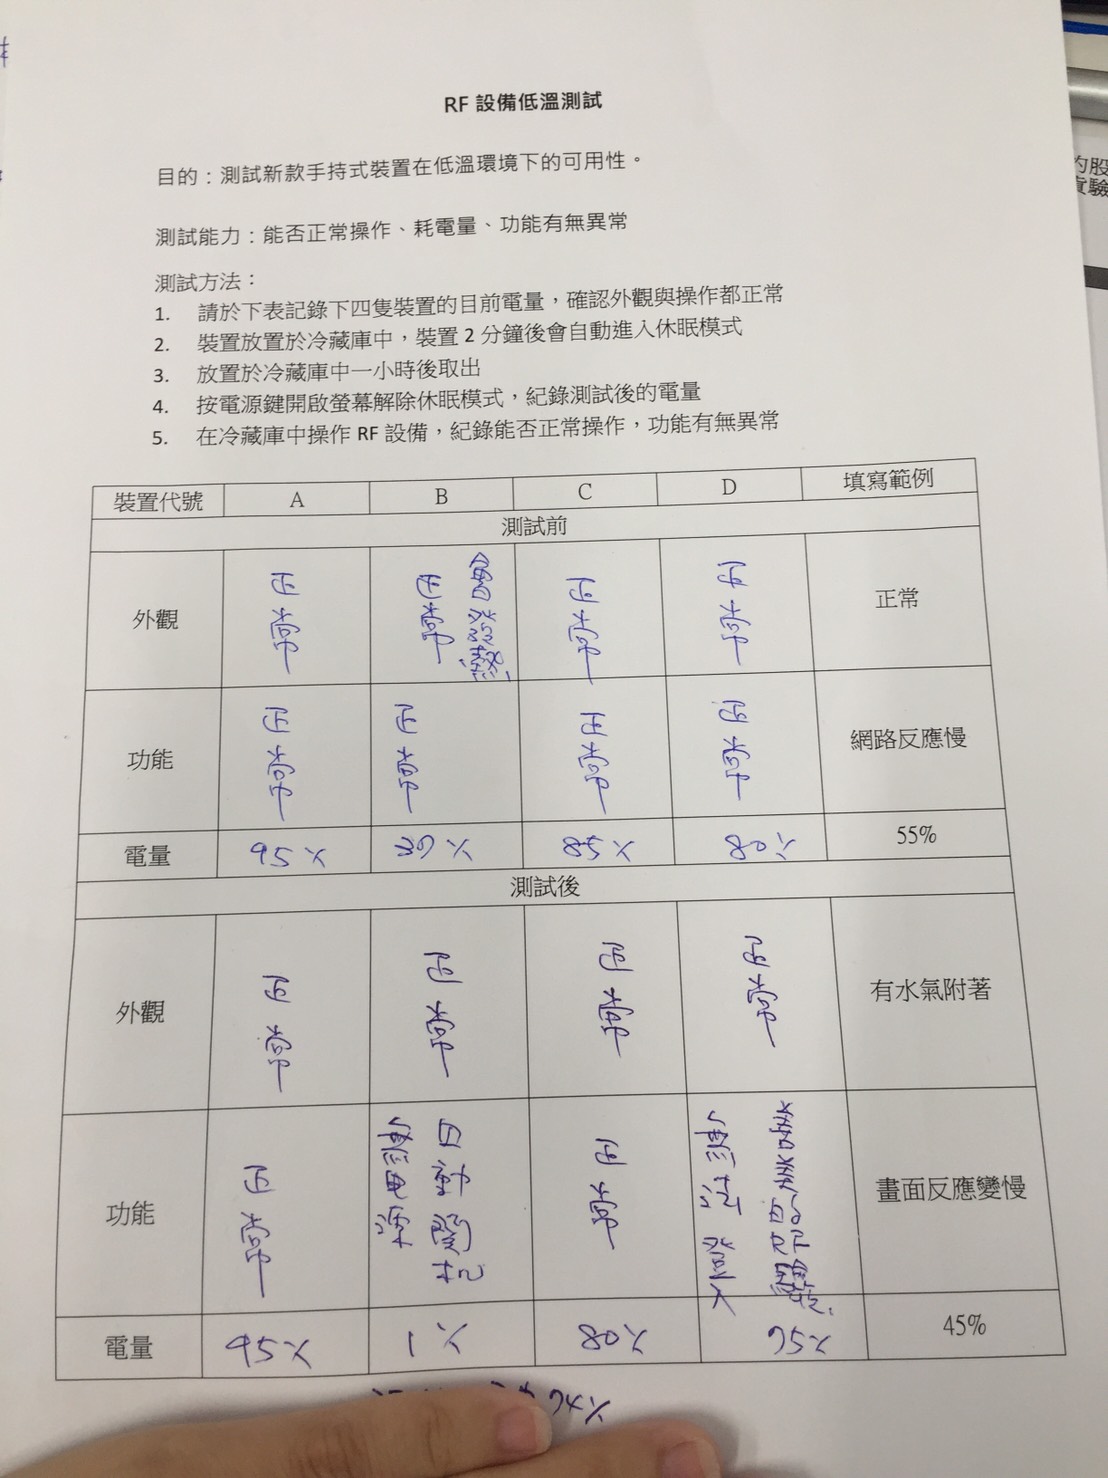 RF 設備低溫測試
目的：測試新款手持式裝置在低溫環境下的可用性。
測試能力：能否正常操作、耗電量、功能有無異常
測試方法：
1. 請於下表記錄下四隻裝置的目前電量，確認外觀與操作都正常
2. 裝置放置於冷藏庫中，裝置 2 分鐘後會自動進入休眠模式
3. 放置於冷藏庫中一小時後取出
4. 按電源鍵開啟螢幕解除休眠模式，紀錄測試後的電量
5. 在冷藏庫中操作 RF 設備，紀錄能否正常操作，功能有無異常
裝置代號 A B C D 填寫範例
測試前
外觀 正常 正常 正常 正常 正常
功能 正常 正常 正常 正常 網路反應慢
電量 55%
測試後
外觀 正常 正常 正常 正常 有水氣附著
功能 正常 自動關機 正常 無法登入 畫面反應變慢
電量 45%